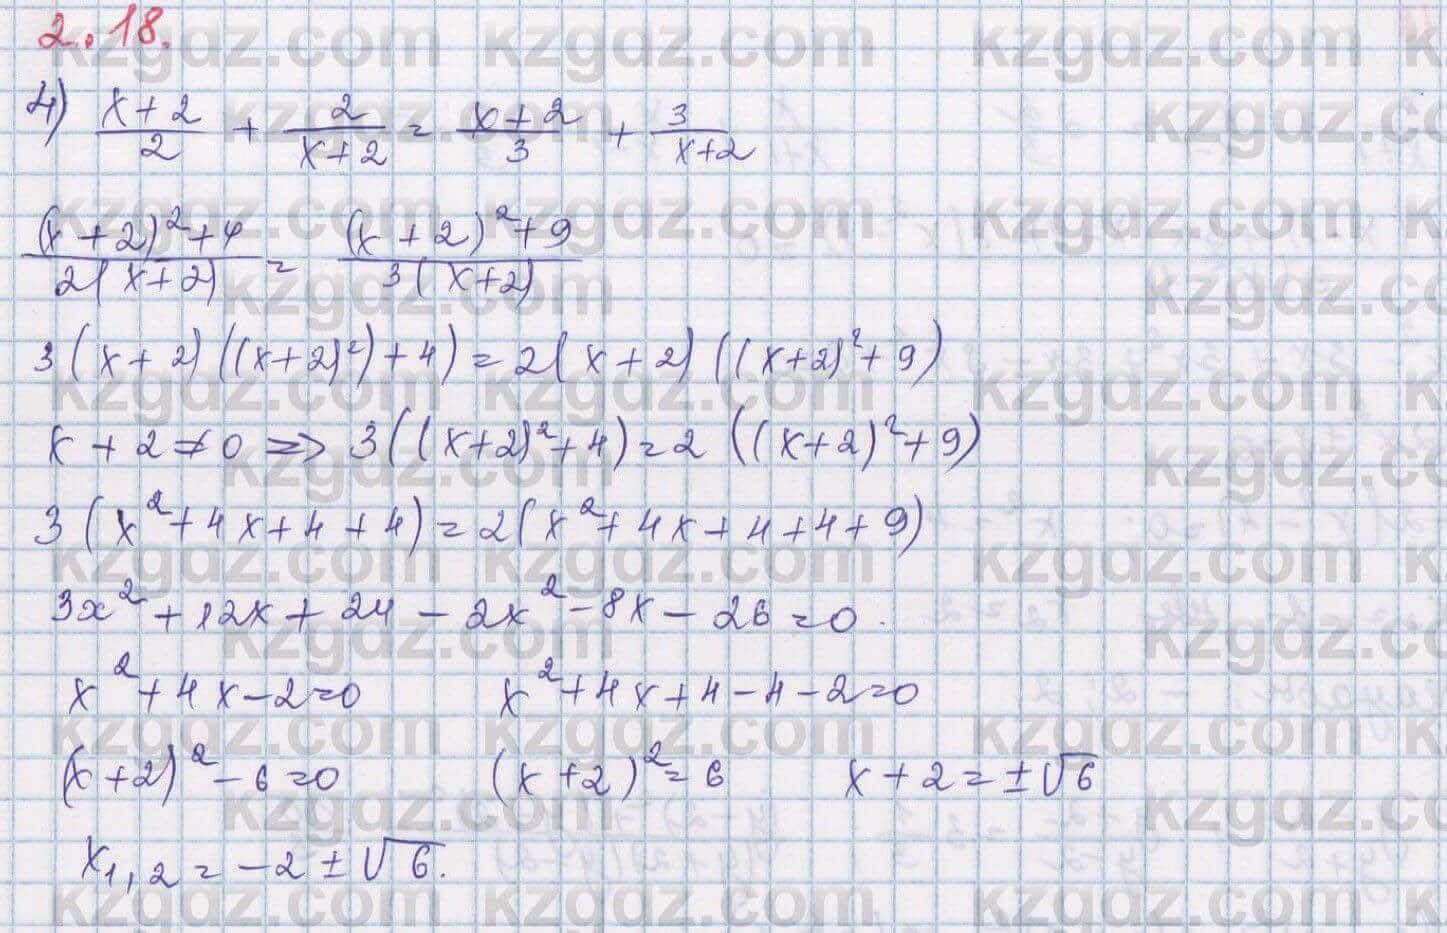 2.18.
4) (x+2)/2 + 2/(x+2) = (x+2)/3 + 3/(x+2)
((x+2)²+4)/(2(x+2)) = ((x+2)²+9)/(3(x+2))
3(x+2)((x+2)²)+4) = 2(x+2)((x+2)²+9)
x+2≠0 => 3((x+2)²+4) = 2((x+2)²+9)
3(x²+4x+4+4) = 2(x²+4x+4+4+9)
3x²+12x+24-2x²-8x-26=0.
x²+4x-2=0 x²+4x+4-4-2=0
(x+2)²-6=0 (x+2)²=6 x+2=±√6
x₁,₂=-2±√6.
kzgdz.com